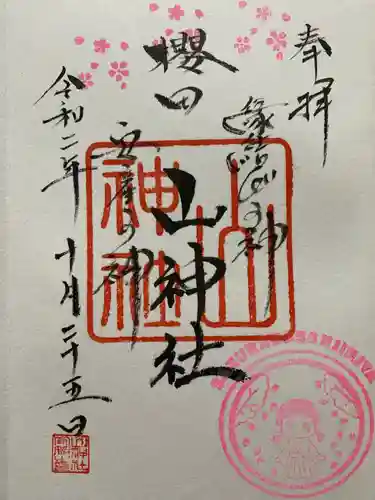 奉拝
縁結びの神
櫻田山神社
五産の神
令和二年十月二十五日
山神社